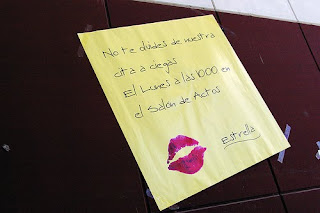 No te olvides de nuestra
cita a ciegas
El Lunes a las 10:00 en
el Salón de Actos
Estrella